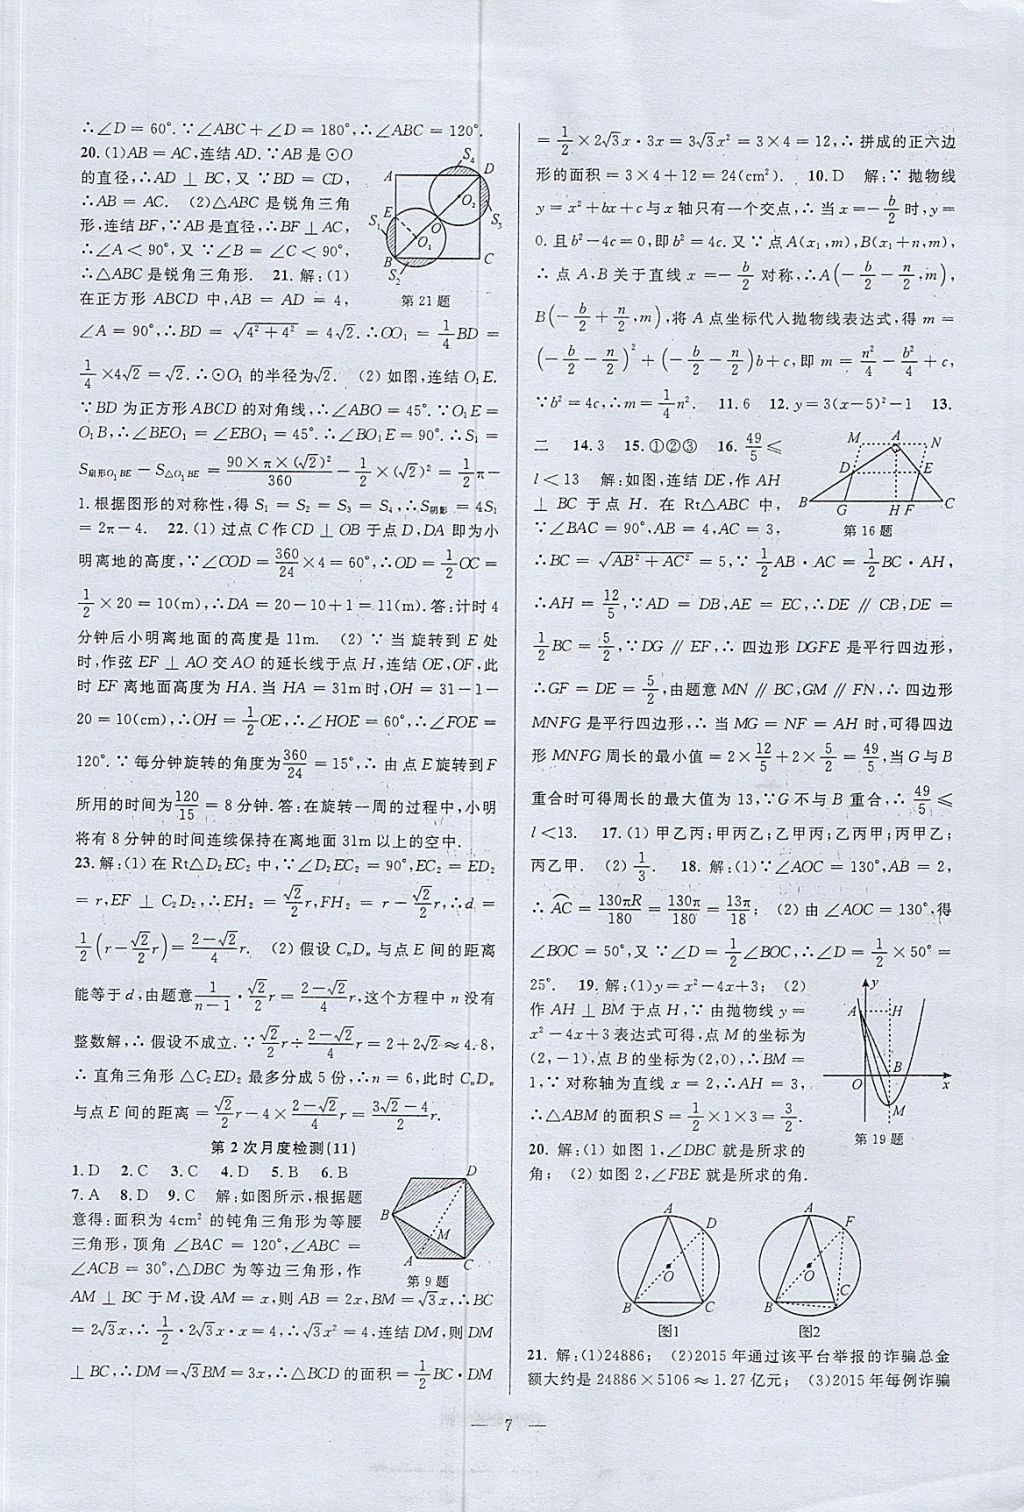 ∴∠D=60°.∵∠ABC+∠D=180°,∴∠ABC=120°.
20.(1)AB=AC,连结AD.∵AB是⊙O
的直径,∴AD⊥BC,又∵BD=CD,
∴AB=AC. (2)△ABC是锐角三角
形,连结BF,∵AB是直径,∴BF⊥AC,
∴∠A<90°,又∵∠B=∠C<90°,
∴△ABC是锐角三角形. 21.解:(1)
在正方形ABCD中,AB=AD=4,
A D E O O₂ O₁ B C S₁ S₂ S₃ S₄
第21题
∠A=90°,∴BD=√(4²+4²)=4√2.∴OO₁=1/4BD=
1/4×4√2=√2.∴⊙O₁的半径为√2. (2)如图,连结O₁E.
∵BD为正方形ABCD的对角线,∴∠ABO=45°.∵O₁E=
O₁B,∴∠BEO₁=∠EBO₁=45°.∴∠BO₁E=90°.∴S₁=
S扇形O₁BE−S△O₁BE=90×π×(√2)²/360−1/2×(√2)²=1/2π−
1.根据图形的对称性,得S₁=S₂=S₃=S₄,∴S阴影=4S₁
=2π−4. 22.(1)过点C作CD⊥OB于点D,DA即为小
明离地的高度,∵∠COD=360/24×4=60°,∴OD=1/2OC=
1/2×20=10(m),∴DA=20−10+1=11(m).答:计时4
分钟后小明离地面的高度是11m. (2)∵当旋转到E处
时,作弦EF⊥AO交AO的延长线于点H,连结OE,OF,此
时EF离地面高度为HA.当HA=31m时,OH=31−1−
20=10(cm),∴OH=1/2OE,∴∠HOE=60°,∴∠FOE=
120°.∵每分钟旋转的角度为360/24=15°,∴由点E旋转到F
所用的时间为120/15=8分钟.答:在旋转一周的过程中,小明
将有8分钟的时间连续保持在离地面31m以上的空中.
23.解:(1)在Rt△D₂EC₂中,∵∠D₂EC₂=90°,EC₂=ED₂
=r,EF⊥C₂D₂,∴EH₂=√2/2r,FH₂=r−√2/2r,∴d=
1/2(r−√2/2r)=(2−√2)/4r. (2)假设CₙDₙ与点E间的距离
能等于d,由题意1/(n−1)·√2/2r=(2−√2)/4r,这个方程中n没有
整数解,∴假设不成立.∵√2/2r÷(2−√2)/4r=2+2√2≈4.8,
∴直角三角形△C₂ED₂最多分成5份,∴n=6,此时C₆Dₙ
与点E间的距离=√2/2r−4×(2−√2)/4r=(3√2−4)/2r.
第2次月度检测(11)
1.D 2.C 3.C 4.D 5.B 6.B
7.A 8.D 9.C 解:如图所示,根据题
意得:面积为4cm²的钝角三角形为等腰
三角形,顶角∠BAC=120°,∠ABC=
∠ACB=30°,△DBC为等边三角形,作
D B M A C
第9题
AM⊥BC于M,设AM=x,则AB=2x,BM=√3x,∴BC
=2√3x,∴1/2·2√3x·x=4,∴√3x²=4,连结DM,则DM
⊥BC,∴DM=√3BM=3x,∴△BCD的面积=1/2BC·DM
=1/2×2√3x·3x=3√3x²=3×4=12,∴拼成的正六边
形的面积=3×4+12=24(cm²). 10.D 解:∵抛物线
y=x²+bx+c与x轴只有一个交点,∴当x=−b/2时,y=
0.且b²−4c=0,即b²=4c.又∵点A(x₁,m),B(x₁+n,m),
∴点A、B关于直线x=−b/2对称,∴A(−b/2−n/2,m),
B(−b/2+n/2,m),将A点坐标代入抛物线表达式,得m=
(−b/2−n/2)²+(−b/2−n/2)b+c,即m=n²/4−b²/4+c,
∵b²=4c,∴m=1/4n². 11.6 12.y=3(x−5)²−1 13.
二 14.3 15.①②③ 16.49/5≤
l<13 解:如图,连结DE,作AH
⊥BC于点H.在Rt△ABC中,
∵∠BAC=90°,AB=4,AC=3,
M A N D E B G H F C
第16题
∴BC=√(AB²+AC²)=5,∵1/2AB·AC=1/2BC·AH,
∴AH=12/5,∵AD=DB,AE=EC,∴DE∥CB,DE=
1/2BC=5/2,∵DG∥EF,∴四边形DGFE是平行四边形,
∴GF=DE=5/2,由题意MN∥BC,GM∥FN,∴四边形
MNFG是平行四边形,∴当MG=NF=AH时,可得四边
形MNFG周长的最小值=2×12/5+2×5/2=49/5,当G与B
重合时可得周长的最大值为13,∵G不与B重合,∴49/5≤
l<13. 17.(1)甲乙丙;甲丙乙;乙甲丙;乙丙甲;丙甲乙;
丙乙甲. (2)1/3. 18.解:(1)∵∠AOC=130°,AB=2,
∴⌒AC=130πR/180=130π/180=13π/18; (2)由∠AOC=130°,得
∠BOC=50°,又∵∠D=1/2∠BOC,∴∠D=1/2×50°=
25°. 19.解:(1)y=x²−4x+3; (2)
作AH⊥BM于点H,∵由抛物线y=
x²−4x+3表达式可得,点M的坐标为
(2,−1),点B的坐标为(2,0),∴BM=
1,∵对称轴为直线x=2,∴AH=3,
∴△ABM的面积S=1/2×1×3=3/2.
y A H B O x M
第19题
20.解:(1)如图1,∠DBC就是所求的
角; (2)如图2,∠FBE就是所求的角.
A D O B C
图1
A F O B C
图2
21.解:(1)24886; (2)2015年通过该平台举报的诈骗总金
额大约是24886×5106≈1.27亿元; (3)2015年每例诈骗
— 7 —